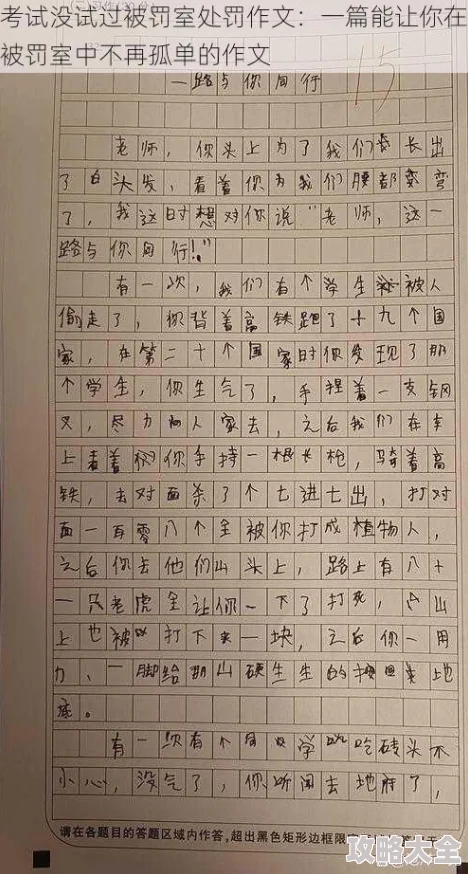 考试没试过被罚室处罚作文：一篇能让你在
被罚室中不再孤单的作文
一路与你同行
15
老师，你头上为了我们长出
了白头发，看着你为我们腰都变弯
了，我这时想对你说“老师，这一
路与你同行！”
有一次，我们有个学生被人
偷走了，你背着高铁跑了十九个国
家，在第二十个国家时你发现了那
个学生，你生气了，手捏着一支钢
叉，尽力向人家去，之后我们在车
上看着你手持一根长枪，骑着高
铁，去对面杀了个七进七出，打对
面一百零八个全被你打成植物人，
之后你去他们山头上，路上有八十
一只老虎全让你一下了打死，山
上也被打下来一块，之后你一用
力、一脚给那山硬生生的地
底。
有一次有个同学吃砖头不
小心，没气了，你听闻去地府了，
请在各题目的答题区域内作答，超出黑色矩形边框限
攻略大全